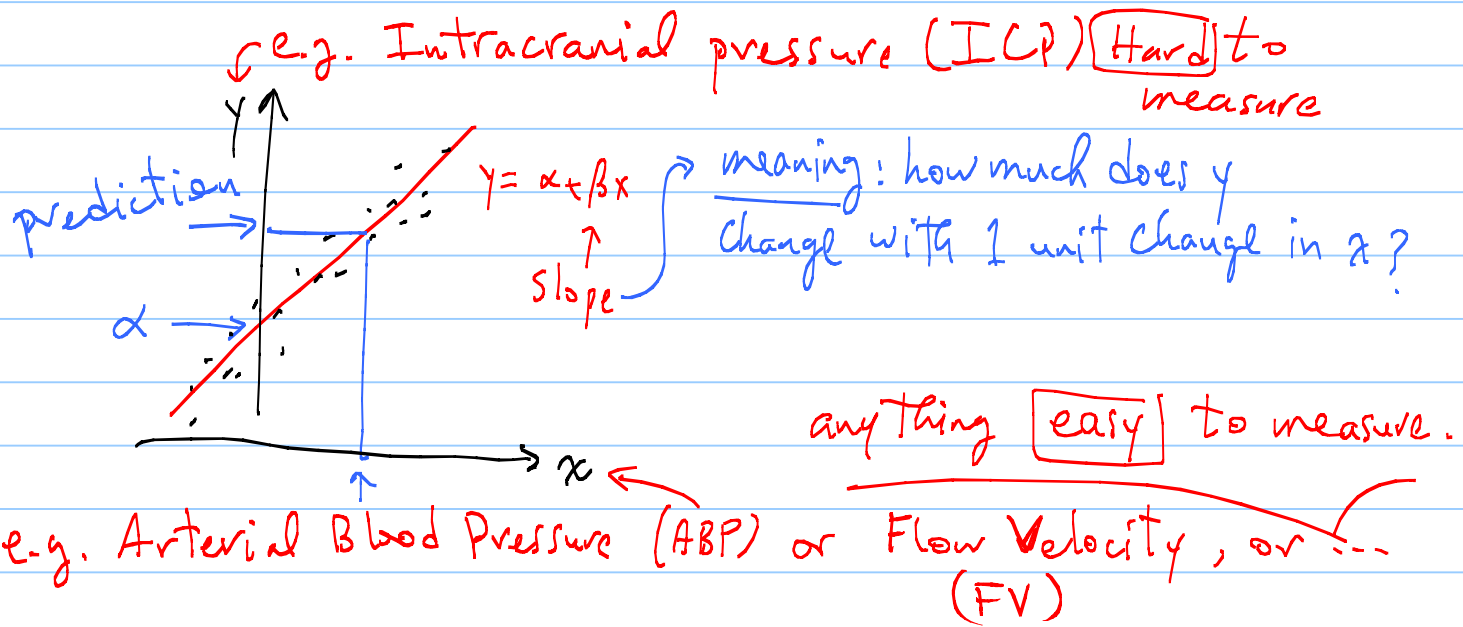 e.g. Intracranial pressure (ICP) Hard to
measure
Y
prediction
y = α + βx
slope
meaning: how much does y
change with 1 unit change in x?
α
anything easy to measure.
x
e.g. Arterial Blood Pressure (ABP) or Flow Velocity, or ...
(FV)